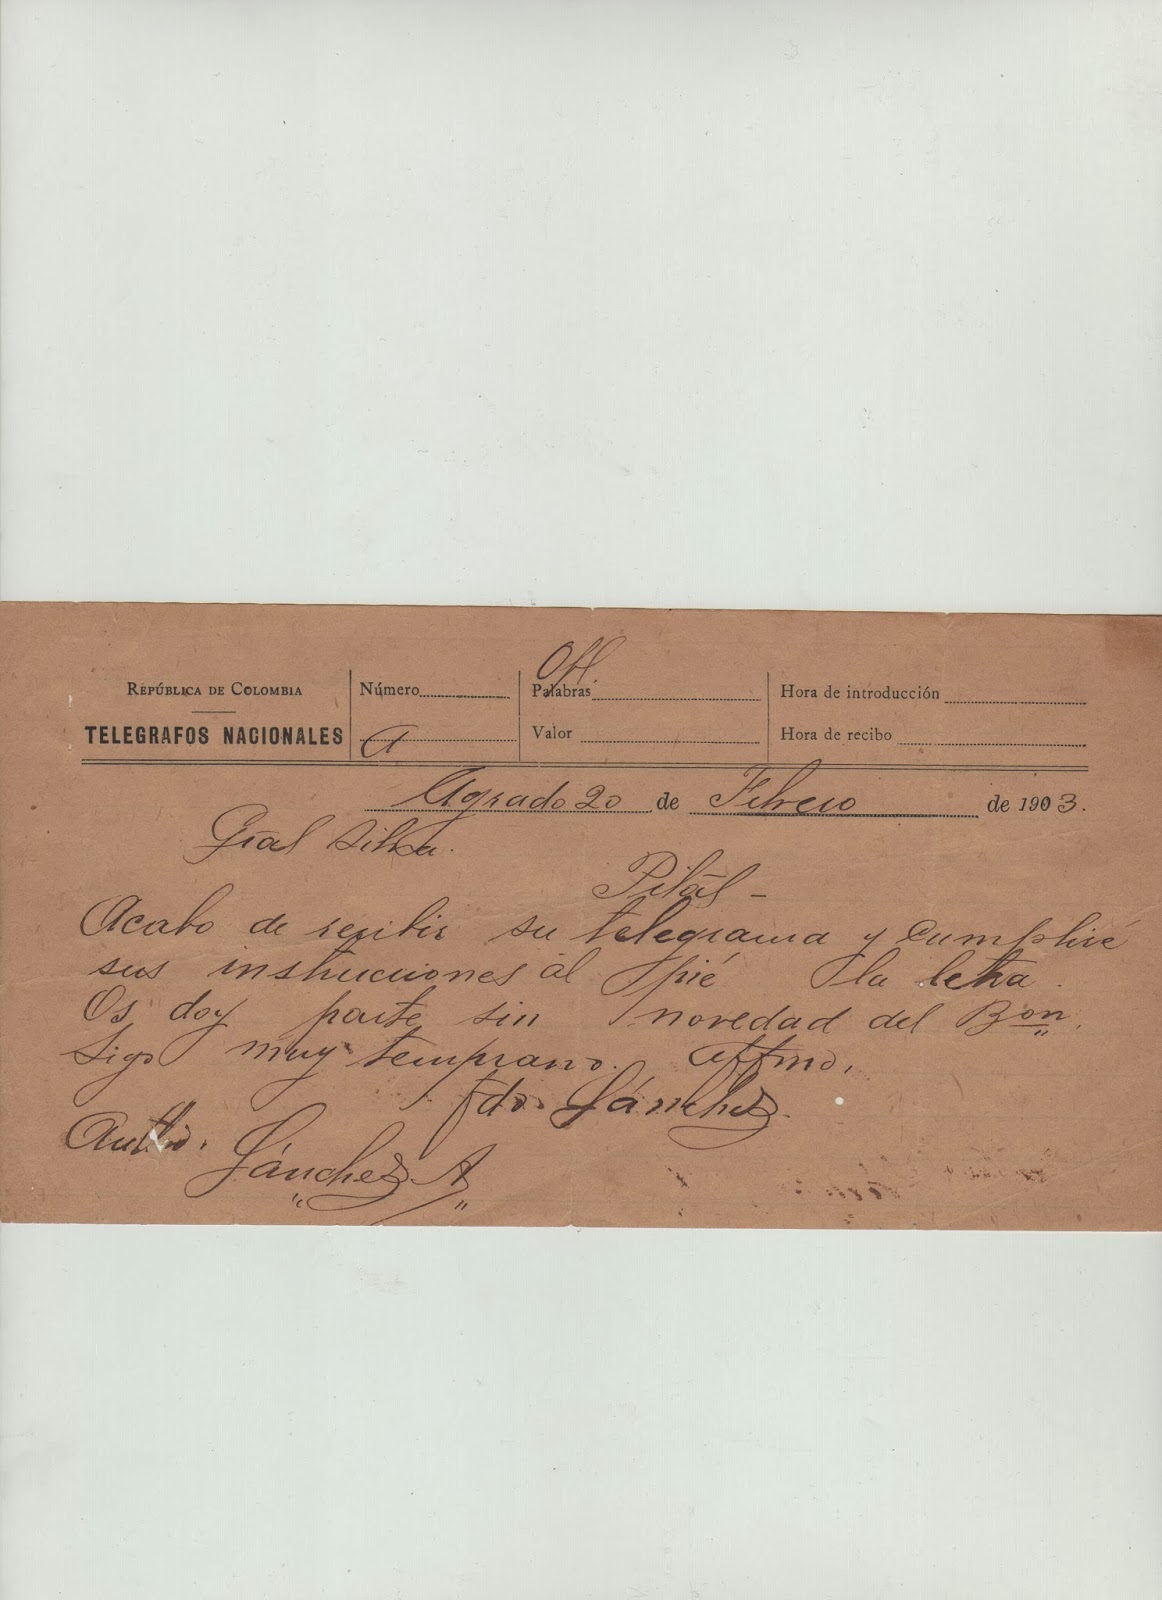 Off.
REPÚBLICA DE COLOMBIA
TELEGRAFOS NACIONALES
Número
A
Palabras
Valor
Hora de introducción
Hora de recibo
Agrado 20 de Febrero de 1903.
Gral Silva.
Pitál -
Acabo de recibir su telegrama y cumpliré
sus instrucciones al pié la letra.
Os doy parte sin novedad del Bon.
Sigo muy temprano. Affmo,
fdo. Sánchez.
Sánchez A